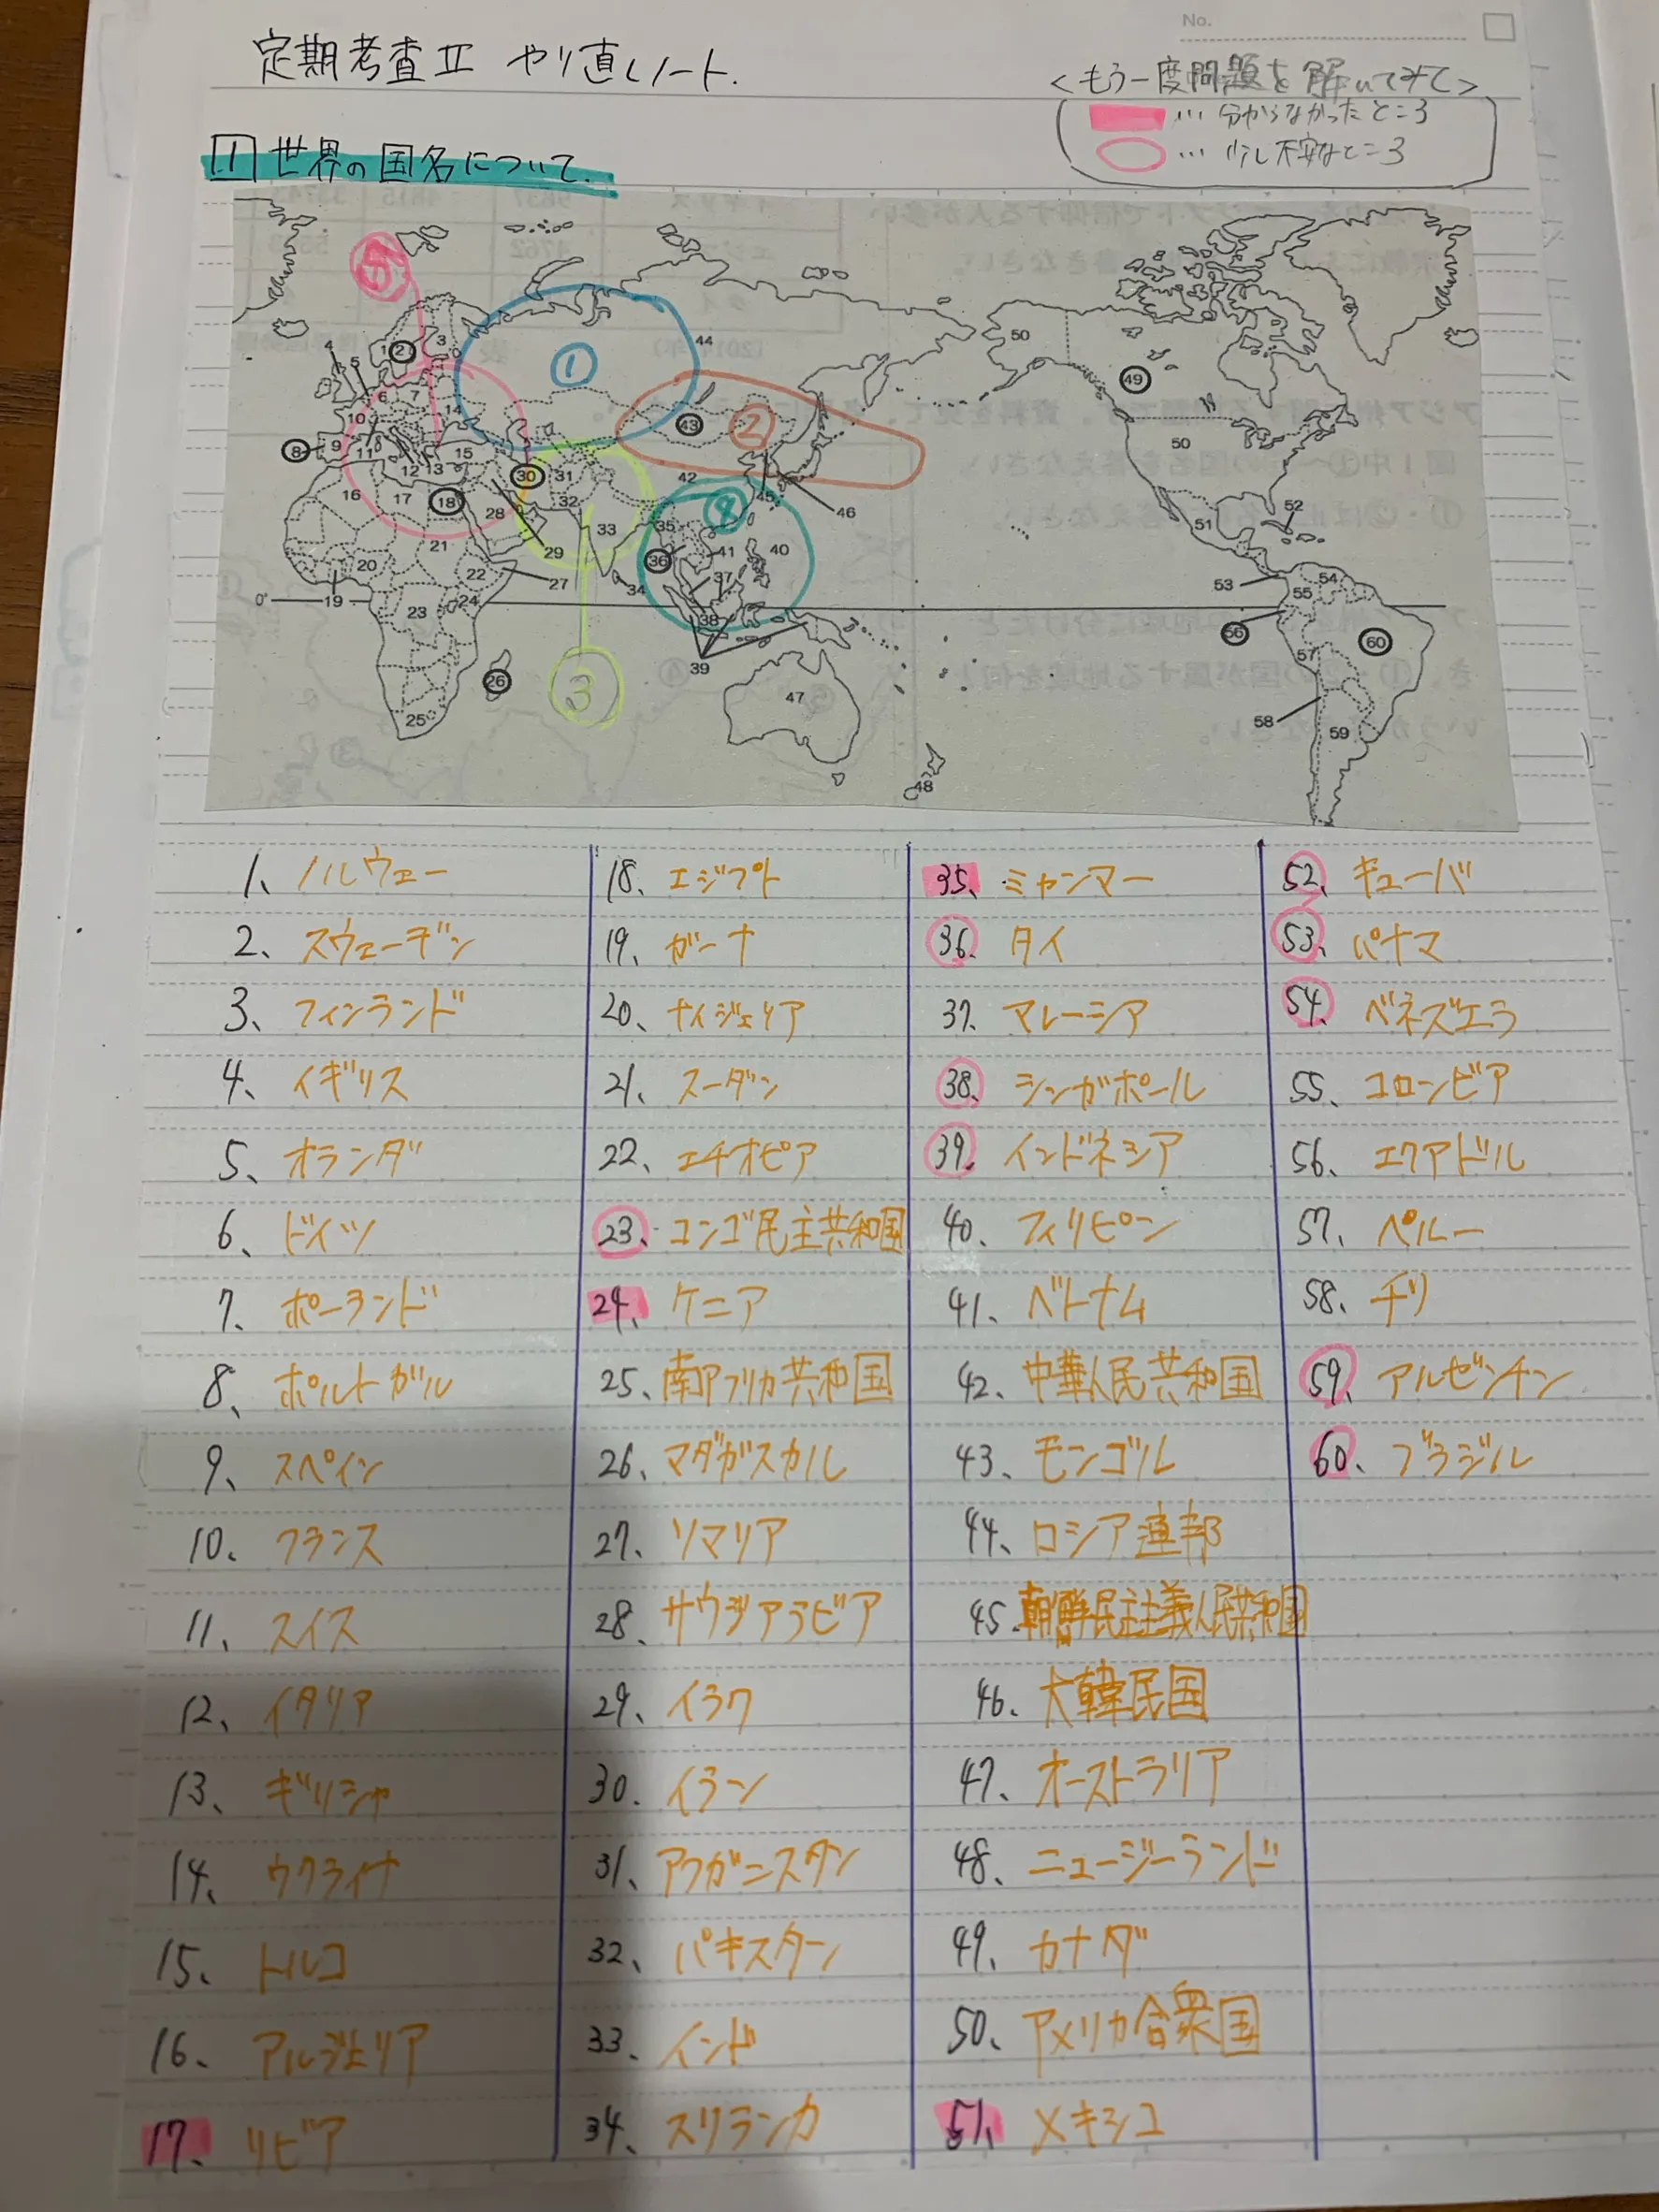 No.
定期考査Ⅱ やり直しノート.
<もう一度問題を解いてみて>
… 分からなかったところ
… 少し不安なところ
1 世界の国名について.
44
50
4
5
1
2
3
49
6
7
14
10
43
50
8
9
11
15
30
31
42
12
13
45
16
17
18
32
46
52
28
33
35
51
21
29
36
41
40
20
22
27
34
37
53
54
0°
19
23
24
38
55
56
60
39
57
26
3
47
25
58
59
48
1
2
1、ノルウェー
2、スウェーデン
3、フィンランド
4、イギリス
5、オランダ
6、ドイツ
7、ポーランド
8、ポルトガル
9、スペイン
10、フランス
11、スイス
12、イタリア
13、ギリシャ
14、ウクライナ
15、トルコ
16、アルジェリア
17、リビア
18、エジプト
19、ガーナ
20、ナイジェリア
21、スーダン
22、エチオピア
23、コンゴ民主共和国
24、ケニア
25、南アフリカ共和国
26、マダガスカル
27、ソマリア
28、サウジアラビア
29、イラク
30、イラン
31、アフガニスタン
32、パキスタン
33、インド
34、スリランカ
35、ミャンマー
36、タイ
37、マレーシア
38、シンガポール
39、インドネシア
40、フィリピン
41、ベトナム
42、中華人民共和国
43、モンゴル
44、ロシア連邦
45、朝鮮民主主義人民共和国
46、大韓民国
47、オーストラリア
48、ニュージーランド
49、カナダ
50、アメリカ合衆国
51、メキシコ
52、キューバ
53、パナマ
54、ベネズエラ
55、コロンビア
56、エクアドル
57、ペルー
58、チリ
59、アルゼンチン
60、ブラジル